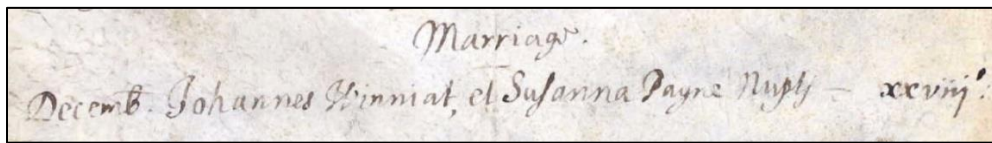 Marriage.
Decemb. Johannes Winniat, et Susanna Payne Nupt — xxviij°.